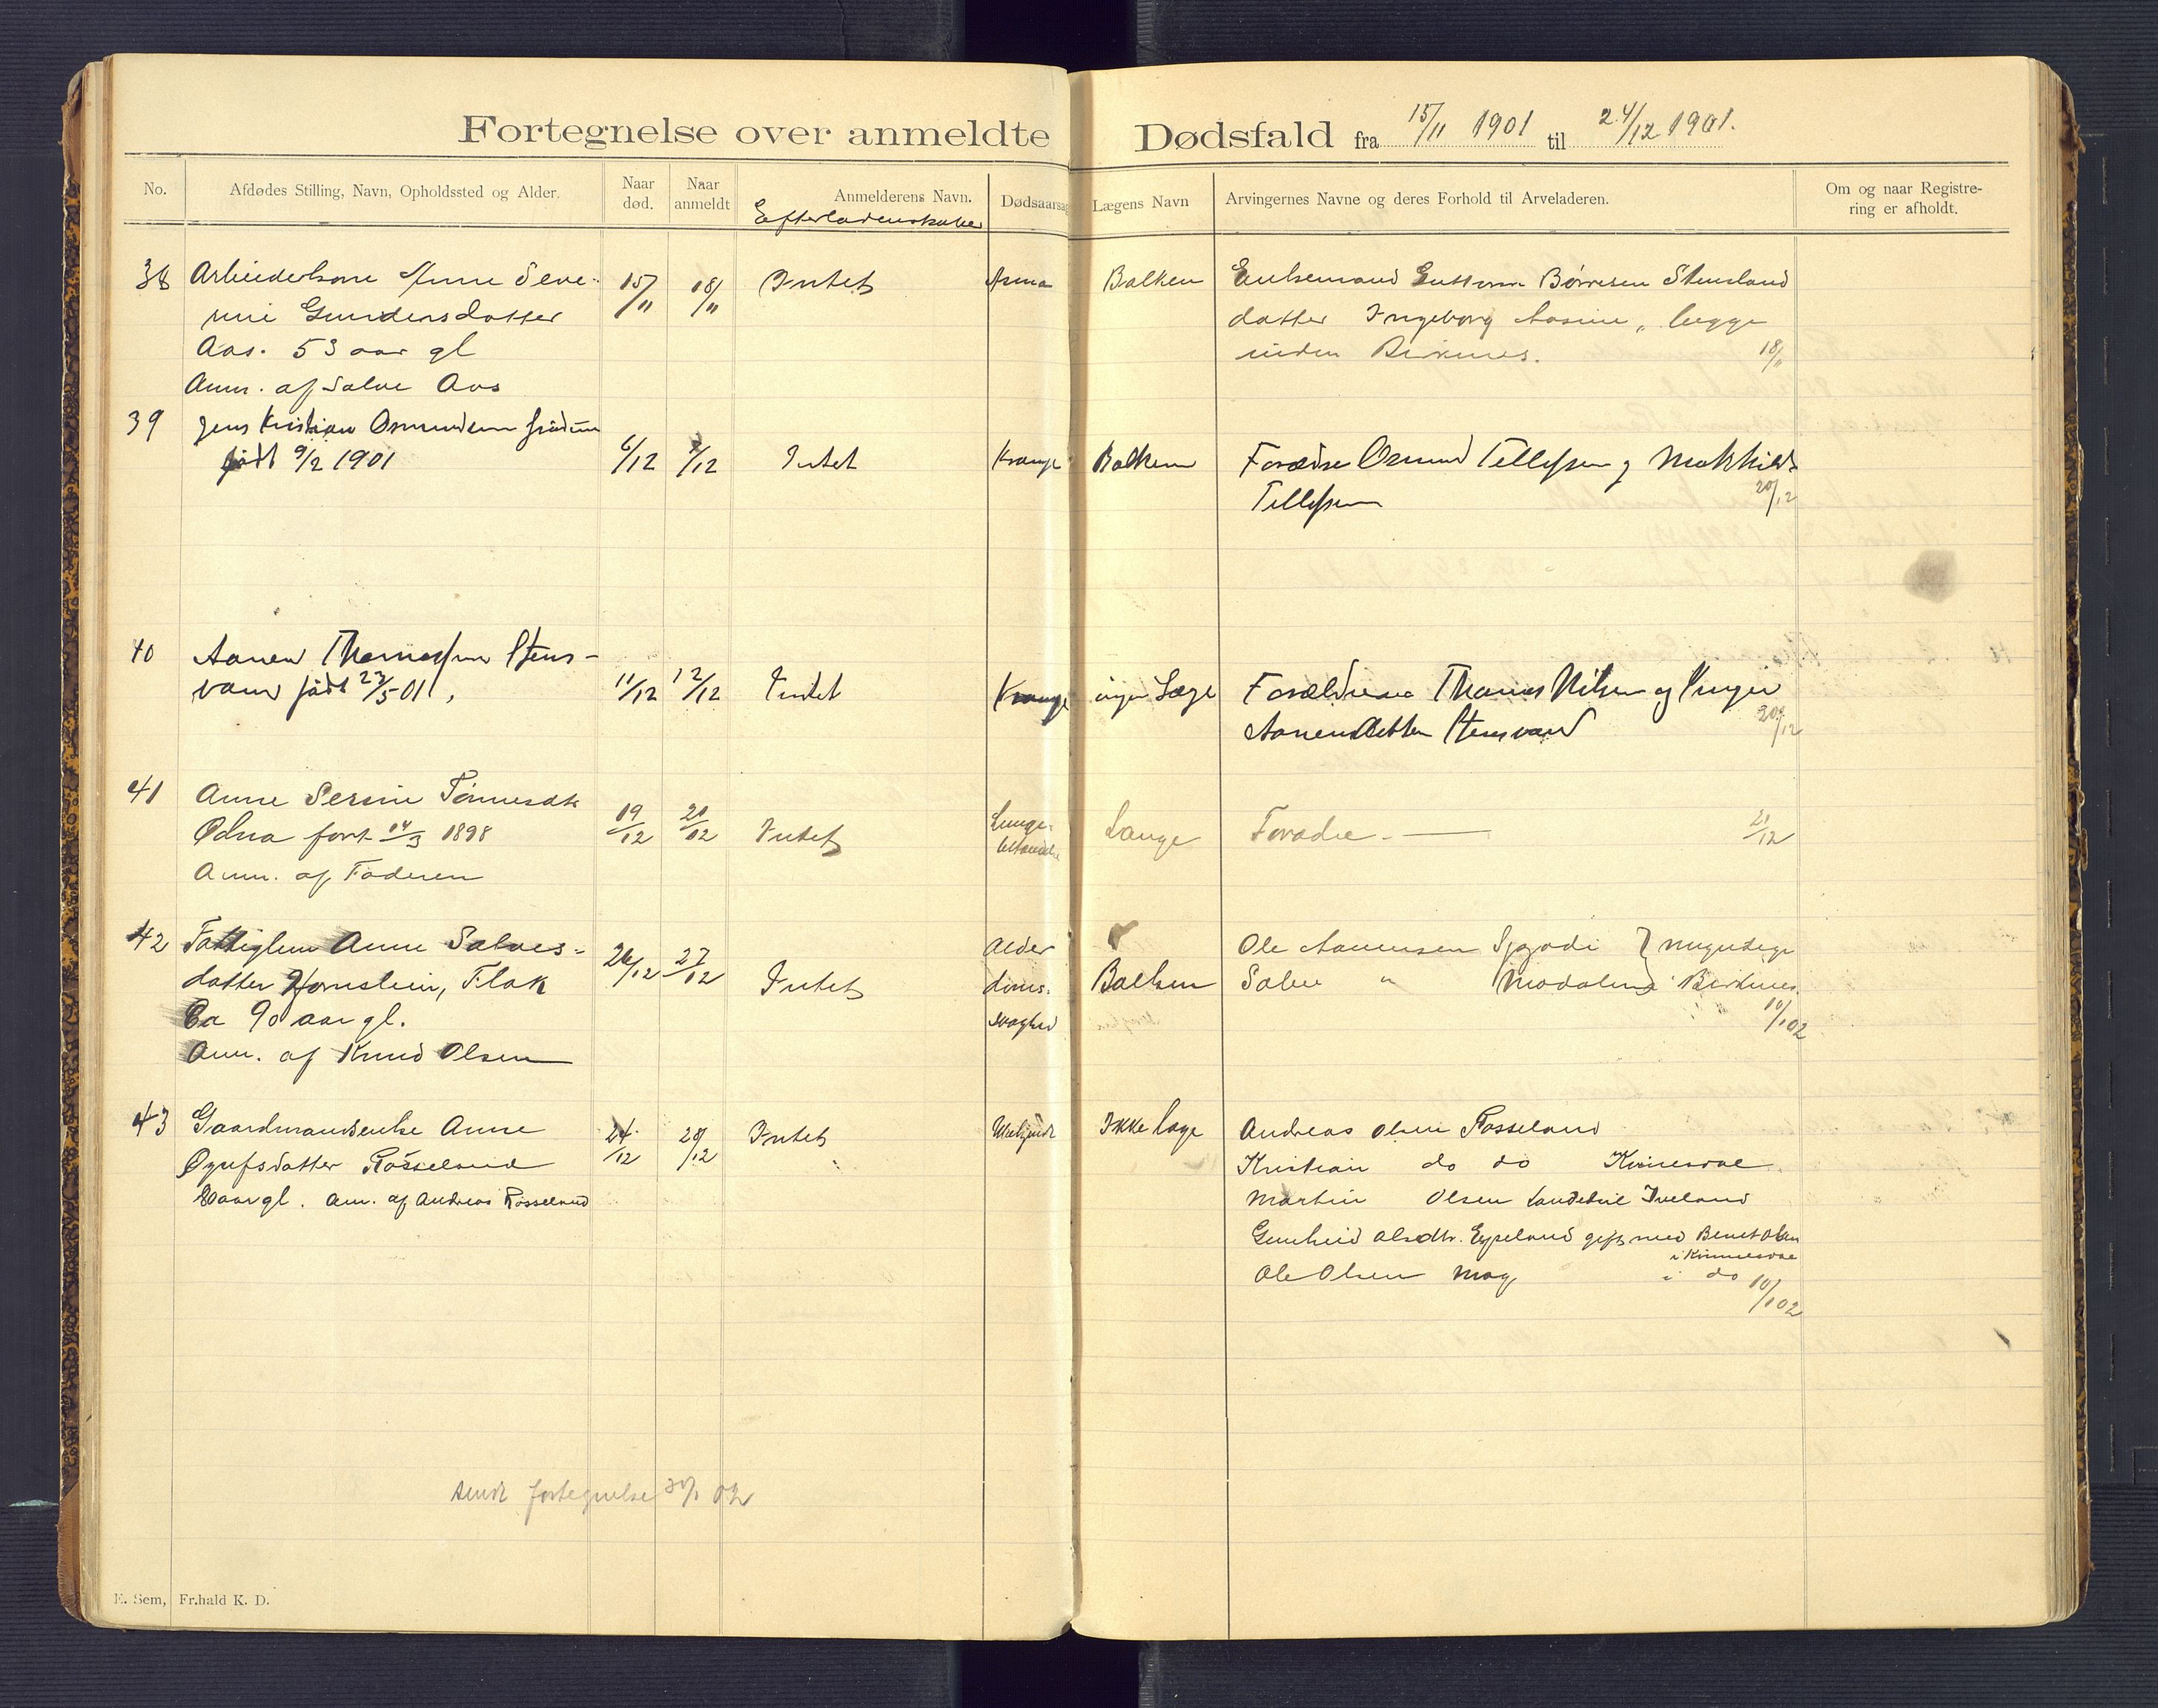 Fortegnelse over anmeldte Dødsfald fra 15/11 1901 til 24/12 1901.
No.
Afdødes Stilling, Navn, Opholdssted og Alder.
Naar død.
Naar anmeldt
Anmelderens Navn.
Efterladenskaber
Dødsaarsag
Lægens Navn
Arvingernes Navne og deres Forhold til Arveladeren.
Om og naar Registre-
ring er afholdt.
38 Arbeiderkone Anne Seve- 15/11 18/11 Intet Balken Enkemand Guttorm Børresen Stensland
rine Gundersdatter datter Ingeborg Aasine, begge
Aas. 53 aar gl inden Birkenes. 18/11
Anm. af Salve Aas
39 Jens Kristian Osmundsen
født 9/2 1901 6/12 7/12 Intet Krampe Balken Forældre Osmund Tellefsen og Mathilde
Tellefsen 20/12
40 Aanen Thomassen Stens-
vand født 23/5 01, 11/12 12/12 Intet Krampe ingen Læge Forældrene Thomas Nilsen og Inger
Aanensdatter Stensvand 20/12
41 Anne Serine Tønnesdtr
Ødna født 14/3 1898 19/12 21/12 Intet Lunge- Lange Forældre 21/12
Anm. af Faderen
42 Fattiglem Anne Salves- 26/12 27/12 Intet Alder Ole Aanensen myndige
datter Hornslien, Flak doms- Balken Salve " Modalen i Birkenes
Ca 90 aar gl. svaghed 10/1 02
Anm. af Knud Olsen
43 Gaardmandsenke Anne 24/12 28/12 Intet Ubekjendt Ikke læge Andreas Olsen Rosseland
Øgufsdatter Rosseland Kristian do do
80 aar gl. Am. af Andreas Rosseland Martin Olsen Iveland
Gunhild Olsdtr. Eppeland gift med Bernt Olsen
Ole Olsen Moy i do 10/1 02
sendt fortegnelse 30/1 02
E. Sem, Fr.hald K. D.